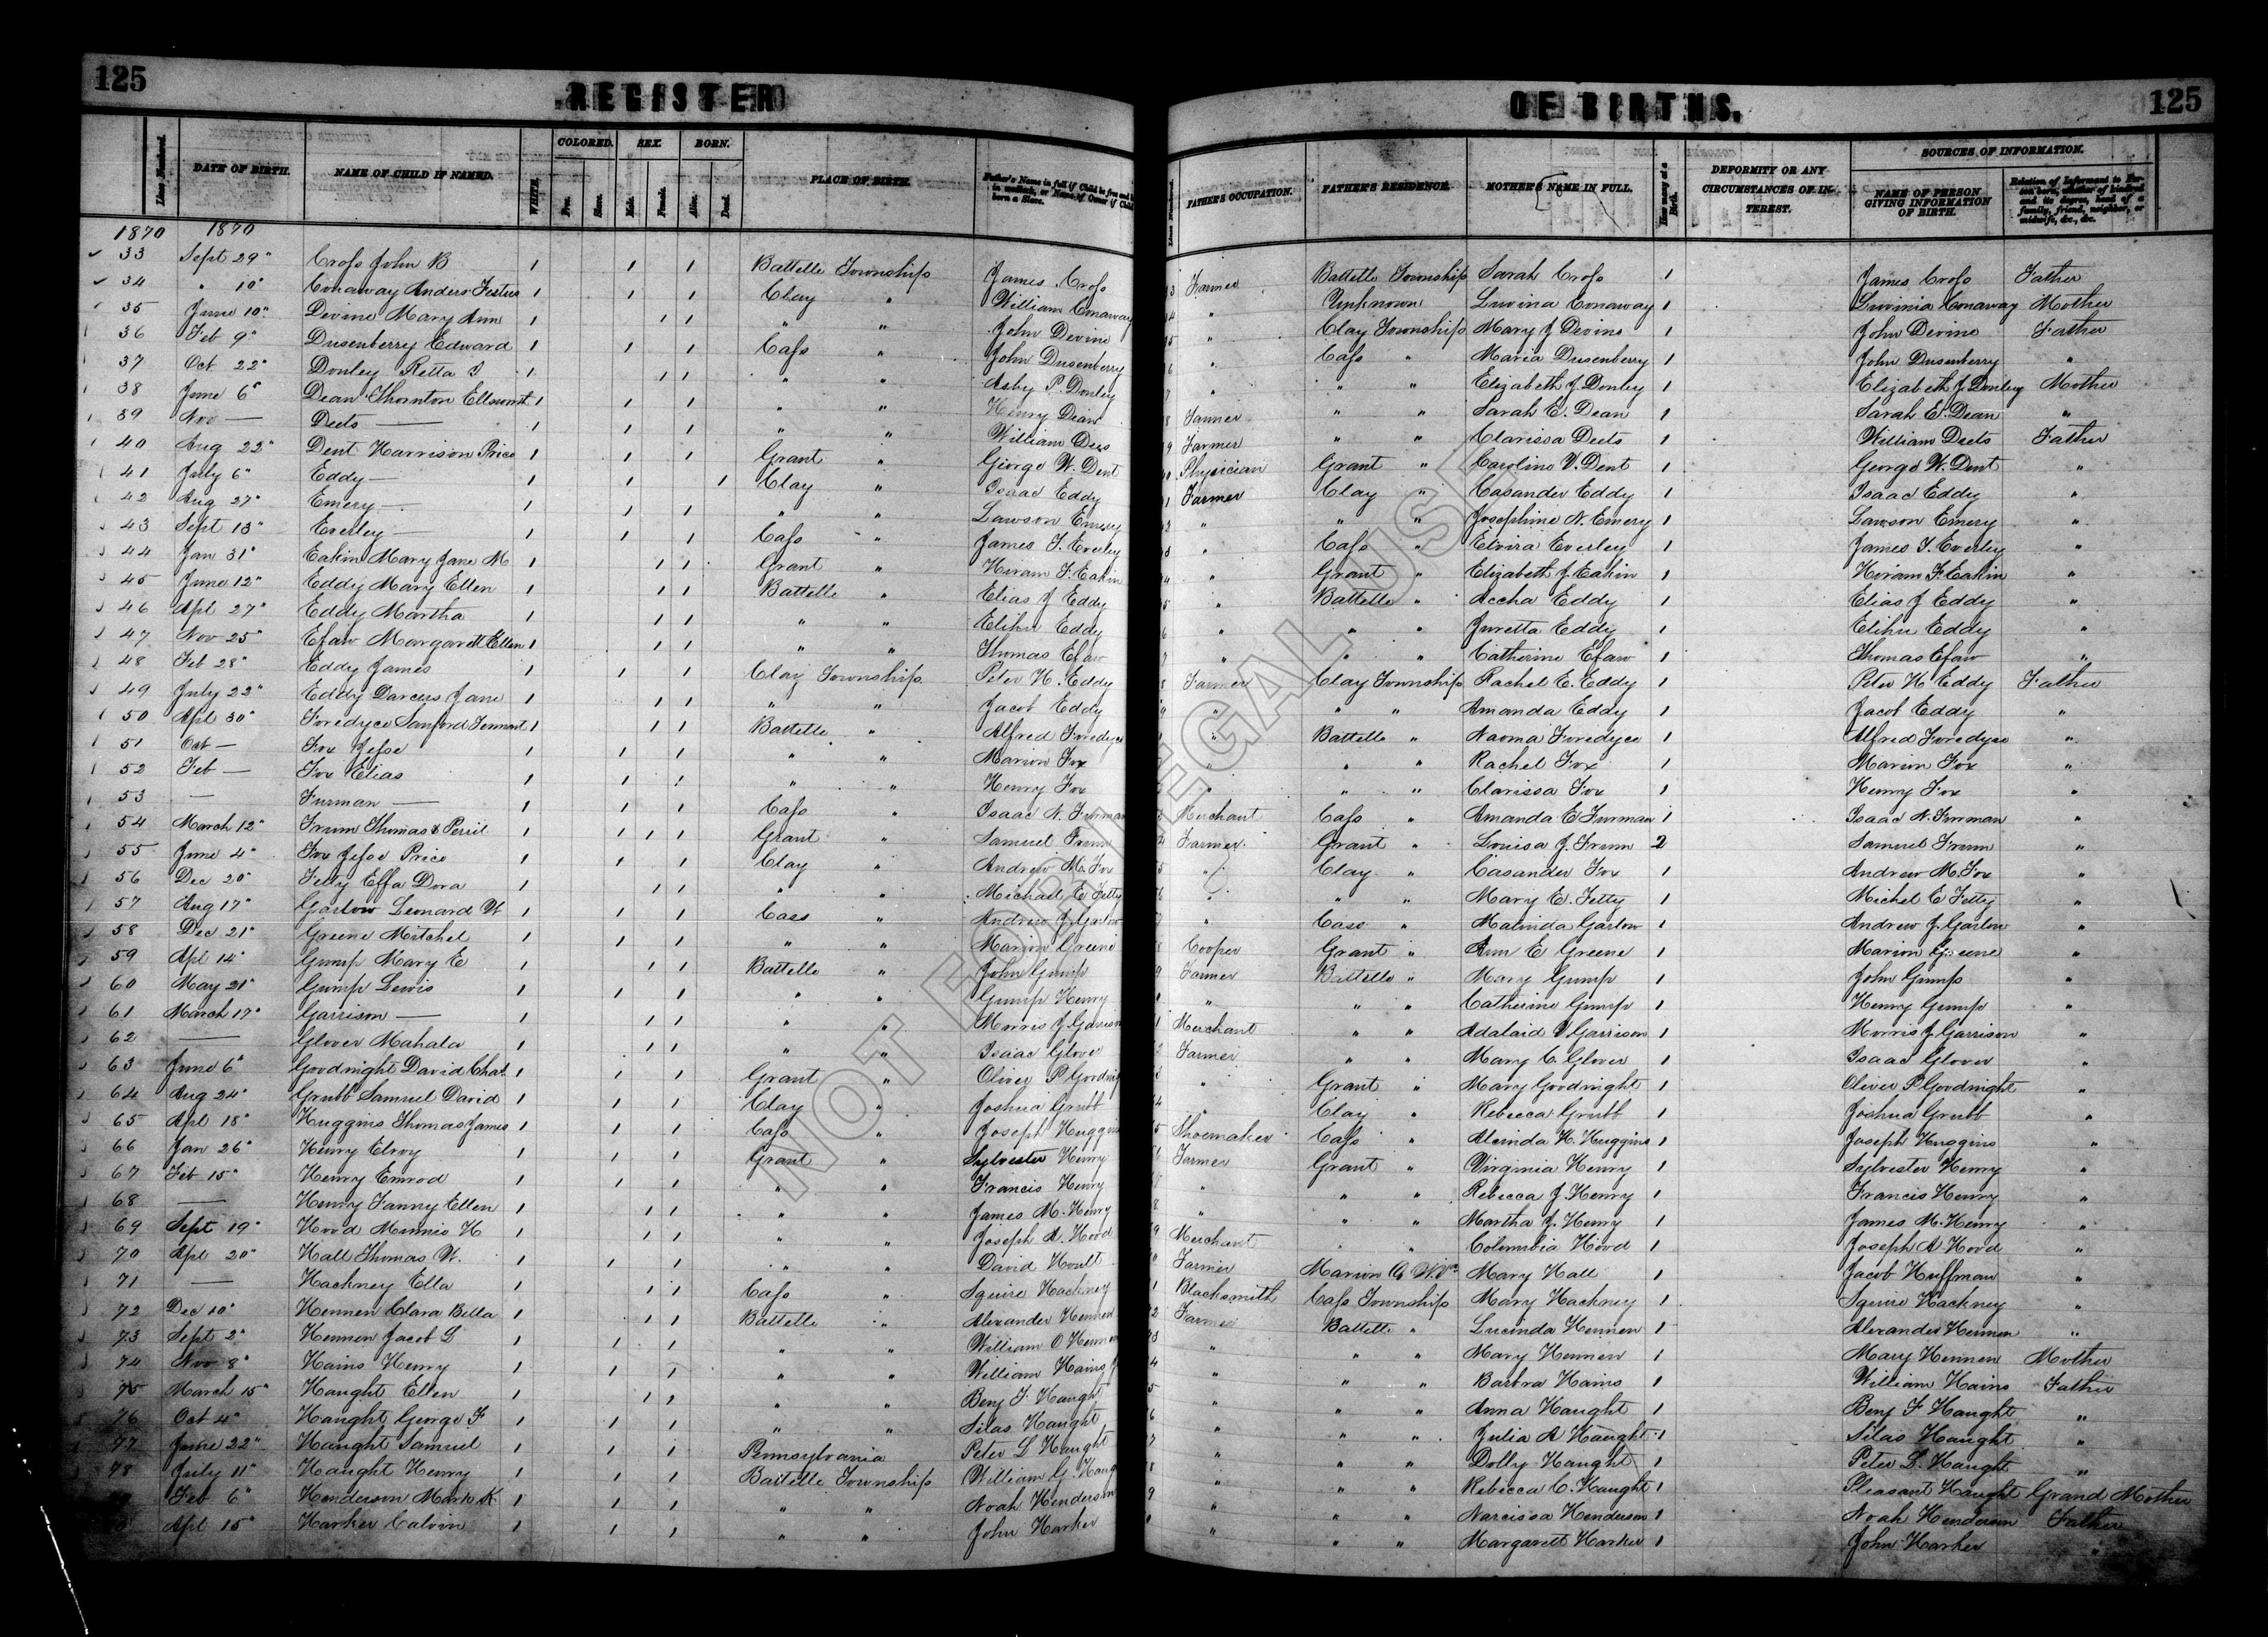 125 REGISTER OF BIRTHS. 125
Lines Numbered. DATE OF BIRTH. NAME OF CHILD IF NAMED. WHITE. COLORED. Free. Slave. SEX. Male. Female. BORN. Alive. Dead. PLACE OF BIRTH. Father's Name in full if Child be free and born in wedlock, or Name of Owner if Child born a Slave. FATHER'S OCCUPATION. FATHER'S RESIDENCE. MOTHER'S NAME IN FULL. How many at a Birth. DEFORMITY OR ANY CIRCUMSTANCES OF INTEREST. SOURCES OF INFORMATION. NAME OF PERSON GIVING INFORMATION OF BIRTH. Relation of Informant to Person born, whether of kindred and its degree, head of a family, friend, neighbor, or midwife, &c., &c.
1870 1870
33 Sept 29" Cross John B 1 1 1 Battelle Township James Cross Farmer Battelle Township Sarah Cross 1 James Cross Father
34 " 10" Conaway Anders Festus 1 1 1 Clay " William Conaway " Unknown Luvina Conaway 1 Luvinia Conaway Mother
35 June 10" Devine Mary Ann 1 1 1 " " John Devine " Clay Township Mary J Devine 1 John Devine Father
36 Feb 9" Dusenberry Edward 1 1 1 Cass " John Dusenberry " Cass " Maria Dusenberry 1 John Dusenberry "
37 Oct 22" Donley Retta I 1 1 1 " " Asby P. Donley " " " Elizabeth J Donley 1 Elizabeth J Donley Mother
38 June 6" Dean Thornton Ellsworth 1 1 1 " " Henry Dean Farmer " " Sarah E. Dean 1 Sarah E. Dean "
39 Nov — Deets — 1 1 1 " " William Deets Farmer " " Clarissa Deets 1 William Deets Father
40 Aug 22" Dent Harrison Price 1 1 1 Grant " George W. Dent Physician Grant " Caroline V. Dent 1 George W. Dent "
41 July 6" Eddy — 1 1 1 Clay " Isaac Eddy Farmer Clay " Casander Eddy 1 Isaac Eddy "
42 Aug 27" Emery — 1 1 1 " " Lawson Emery " " " Josephine N. Emery 1 Lawson Emery "
43 Sept 13" Everley — 1 1 1 Cass " James T. Everley " Cass " Elvira Everley 1 James T. Everley "
44 Jan 31" Eakin Mary Jane M 1 1 1 Grant " Hiram F. Eakin " Grant " Elizabeth J Eakin 1 Hiram F. Eakin "
45 June 12" Eddy Mary Ellen 1 1 1 Battelle " Elias J Eddy " Battelle " Accha Eddy 1 Elias J Eddy "
46 Apl 27" Eddy Martha 1 1 1 " " Elihu Eddy " " " Juretta Eddy 1 Elihu Eddy "
47 Nov 25" Efaw Margarett Ellen 1 1 1 " " Thomas Efaw " " " Catherine Efaw 1 Thomas Efaw "
48 Feb 28" Eddy James 1 1 1 Clay Township Peter H. Eddy Farmer Clay Township Rachel E. Eddy 1 Peter H Eddy Father
49 July 22" Eddy Darcus Jane 1 1 1 " " Jacob Eddy " " " Amanda Eddy 1 Jacob Eddy "
50 Apl 30" Foredyce Sanford Tennant 1 1 1 Battelle " Alfred Foredyce " Battelle " Naoma Foredyce 1 Alfred Foredyce "
51 Oct — Fox Jesse 1 1 1 " " Marion Fox " " " Rachel Fox 1 Marion Fox "
52 Feb — Fox Elias 1 1 1 " " Henry Fox " " " Clarissa Fox 1 Henry Fox "
53 — Furman — 1 1 1 Cass " Isaac N. Furman Merchant Cass " Amanda E Furman 1 Isaac N. Furman "
54 March 12" Frum Thomas & Perril 1 1 1 1 Grant " Samuel Frum Farmer Grant " Louisa J. Frum 2 Samuel Frum "
55 June 4" Fox Jesse Price 1 1 1 Clay " Andrew M. Fox " Clay " Casander Fox 1 Andrew M. Fox "
56 Dec 20" Fetty Effa Dora 1 1 1 " " Michael E Fetty " " " Mary E. Fetty 1 Michel E Fetty "
57 Aug 17" Garlow Leonard W 1 1 1 Cass " Andrew J. Garlow " Cass " Malinda Garlow 1 Andrew J. Garlow "
58 Dec 21" Greene Mitchel 1 1 1 " " Marion Greene Cooper Grant " Ann E Greene 1 Marion Greene "
59 Apl 14" Gump Mary E 1 1 1 Battelle " John Gump Farmer Battelle " Mary Gump 1 John Gump "
60 May 21" Gump Lewis 1 1 1 " " Gump Henry " " " Catherine Gump 1 Henry Gump "
61 March 17" Garrison — 1 1 1 " " Morris J Garrison Merchant " " Adalaid V Garrison 1 Morris J Garrison "
62 — Glover Mahala 1 1 1 " " Isaac Glover Farmer " " Mary C. Glover 1 Isaac Glover "
63 June 6" Goodnight David Chas. 1 1 1 Grant " Oliver P Goodnight " Grant " Mary Goodnight 1 Oliver P Goodnight "
64 Aug 24" Grubb Samuel David 1 1 1 Clay " Joshua Grubb " Clay " Rebecca Grubb 1 Joshua Grubb "
65 Apl 18" Huggins Thomas James 1 1 1 Cass " Joseph Huggins Shoemaker Cass " Alcinda H. Huggins 1 Joseph Huggins "
66 Jan 26" Henry Elroy 1 1 1 Grant " Sylvester Henry Farmer Grant " Virginia Henry 1 Sylvester Henry "
67 Feb 15" Henry Emrod 1 1 1 " " Francis Henry " " " Rebecca J. Henry 1 Francis Henry "
68 — Henry Fanny Ellen 1 1 1 " " James M. Henry " " " Martha J. Henry 1 James M. Henry "
69 Sept 19" Hood Minnie H 1 1 1 " " Joseph A. Hood Merchant " " Columbia Hood 1 Joseph A Hood "
70 Apl 20" Hall Thomas W. 1 1 1 " " David Hoult Farmer Marion Co W.Va Mary Hall 1 Jacob Huffman "
71 — Hackney Ella 1 1 1 Cass " Squire Hackney Blacksmith Cass Township Mary Hackney 1 Squire Hackney "
72 Dec 10" Hennen Clara Bella 1 1 1 Battelle " Alexander Hennen Farmer Battelle " Lucinda Hennen 1 Alexander Hennen "
73 Sept 2" Hennen Jacob L 1 1 1 " " William O Hennen " " " Mary Hennen 1 Mary Hennen Mother
74 Nov 8" Hains Henry 1 1 1 " " William Hains " " " Barbra Hains 1 William Hains Father
75 March 15" Haught Ellen 1 1 1 " " Benj F. Haught " " " Anna Haught 1 Benj F Haught "
76 Oct 4" Haught George F 1 1 1 " " Silas Haught " " " Julia A Haught 1 Silas Haught "
77 June 22" Haught Samuel 1 1 1 Pennsylvania Peter L Haught " " " Dolly Haught 1 Peter L. Haught "
78 July 11" Haught Henry 1 1 1 Battelle Township William G. Haug " " " Rebecca C. Haught 1 Pleasant Haught Grand Mother
Feb 6" Henderson Mark K 1 1 1 " " Noah Henderson " " " Narcissa Henderson 1 Noah Henderson Father
Apl 15" Harker Calvin 1 1 1 " " John Harker " " " Margarett Harker 1 John Harker "
NOT FOR LEGAL USE